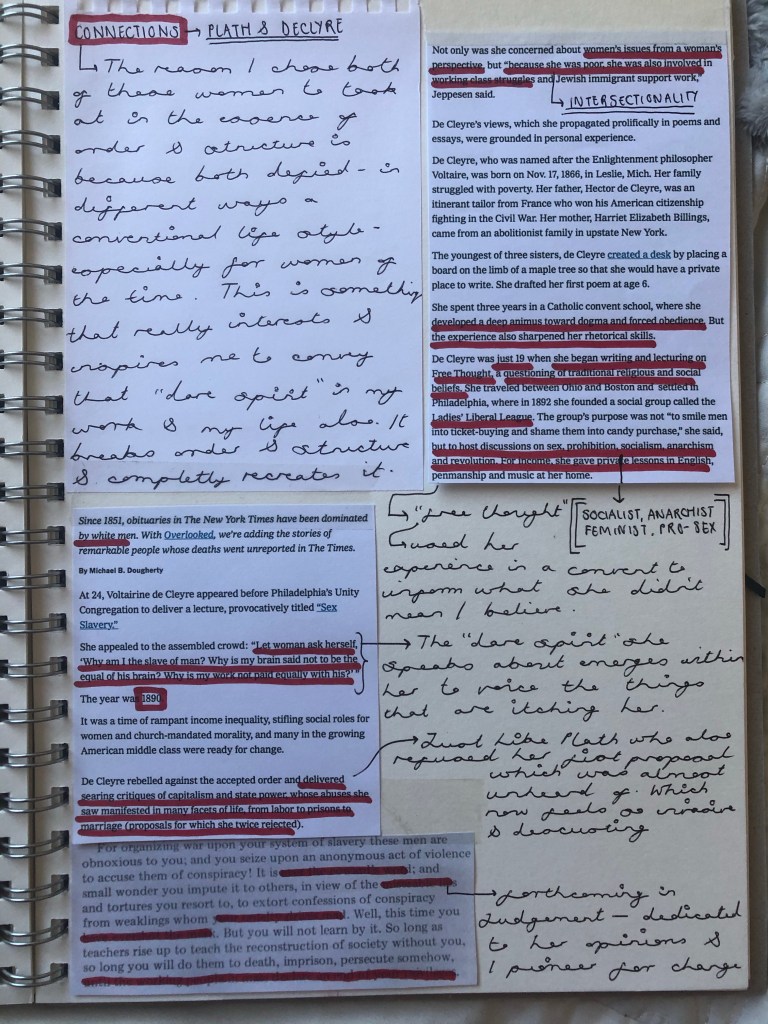 CONNECTIONS → PLATH & DECLYRE
The reason I chose both
of these women to look
at in the essence of
order & structure is
because both defied - in
different ways a
conventional life style -
especially for women of
the time. This is something
that really interests &
inspires me to convey
that "dare spirit" in my
work & my life also. It
breaks order & structure
& completly recreates it.
Not only was she concerned about women's issues from a woman's
perspective, but "because she was poor, she was also involved in
working class struggles and Jewish immigrant support work,"
Jeppesen said.
INTERSECTIONALITY
De Cleyre's views, which she propagated prolifically in poems and
essays, were grounded in personal experience.
De Cleyre, who was named after the Enlightenment philosopher
Voltaire, was born on Nov. 17, 1866, in Leslie, Mich. Her family
struggled with poverty. Her father, Hector de Cleyre, was an
itinerant tailor from France who won his American citizenship
fighting in the Civil War. Her mother, Harriet Elizabeth Billings,
came from an abolitionist family in upstate New York.
The youngest of three sisters, de Cleyre created a desk by placing a
board on the limb of a maple tree so that she would have a private
place to write. She drafted her first poem at age 6.
She spent three years in a Catholic convent school, where she
developed a deep animus toward dogma and forced obedience. But
the experience also sharpened her rhetorical skills.
De Cleyre was just 19 when she began writing and lecturing on
Free Thought, a questioning of traditional religious and social
beliefs. She traveled between Ohio and Boston and settled in
Philadelphia, where in 1892 she founded a social group called the
Ladies' Liberal League. The group's purpose was not "to smile men
into ticket-buying and shame them into candy purchase," she said,
but to host discussions on sex, prohibition, socialism, anarchism
and revolution. For income, she gave private lessons in English,
penmanship and music at her home.
SOCIALIST, ANARCHIST
FEMINIST, PRO-SEX
"free thought"
used her
experience in a convent to
inform what she didn't
mean / believe.
Since 1851, obituaries in The New York Times have been dominated
by white men. With Overlooked, we're adding the stories of
remarkable people whose deaths went unreported in The Times.
By Michael B. Dougherty
At 24, Voltairine de Cleyre appeared before Philadelphia's Unity
Congregation to deliver a lecture, provocatively titled "Sex
Slavery."
She appealed to the assembled crowd: "Let woman ask herself,
'Why am I the slave of man? Why is my brain said not to be the
equal of his brain? Why is my work not paid equally with his?'"
The year was 1890.
It was a time of rampant income inequality, stifling social roles for
women and church-mandated morality, and many in the growing
American middle class were ready for change.
De Cleyre rebelled against the accepted order and delivered
searing critiques of capitalism and state power, whose abuses she
saw manifested in many facets of life, from labor to prisons to
marriage (proposals for which she twice rejected).
The "dare spirit" she
speaks about emerges within
her to voice the things
that are itching her.
Just like Plath who also
refused her first proposal
which was almost
unheard of. Which
now feels so
&
For organizing war upon your system of slavery these men are
obnoxious to you; and you seize upon an anonymous act of violence
to accuse them of conspiracy! It is ; and
small wonder you impute it to others, in view of the
and tortures you resort to, to extort confessions of conspiracy
from weaklings whom . Well, this time you
. But you will not learn by it. So long as
teachers rise up to teach the reconstruction of society without you,
so long you will do them to death, imprison, persecute somehow,
forthcoming in
Judgement — dedicated
to her opinions &
/ pioneer for change